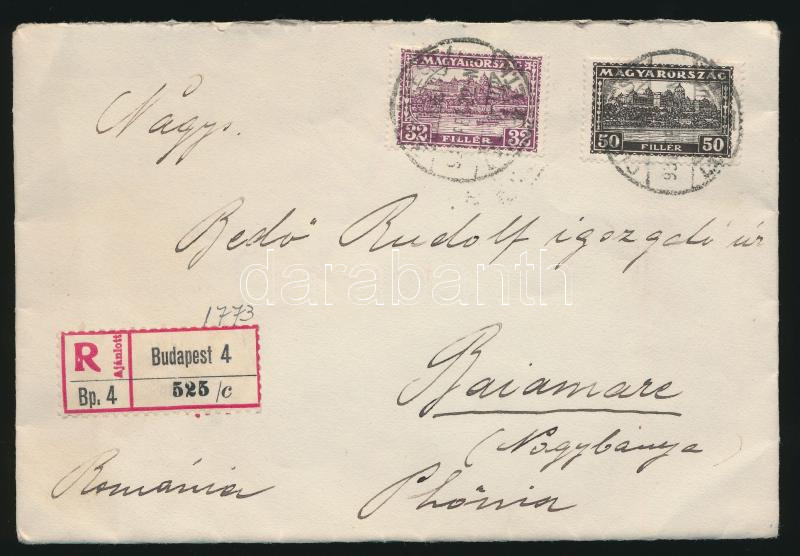 MAGYARORSZÁG
32 FILLÉR 32
MAGYARORSZÁG
50 FILLÉR 50
Nagys.
Bedő Rudolf igazgató úr
darabanth
1773
R Ajánlott
Budapest 4
Bp. 4
525/c
Baiamare
(Nagybánya)
Románia
Phőnix